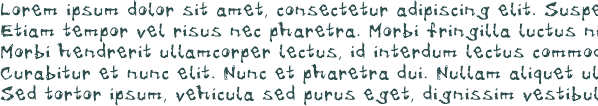 Lorem ipsum dolor sit amet, consectetur adipiscing elit. Suspe
Etiam tempor vel risus nec pharetra. Morbi fringilla luctus ni
Morbi hendrerit ullamcorper lectus, id interdum lectus commod
Curabitur et nunc elit. Nunc et pharetra dui. Nullam aliquet ul
Sed tortor ipsum, vehicula sed purus eget, dignissim vestibul